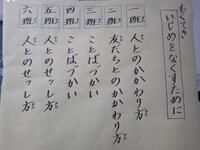 もくてき
いじめをなくすために
一班 人とのかかわり方
二班 友だちとのかかわり方
三班 ことばづかい
四班 ことばづかい
五班 人とのせっし方
六班 人とのせっし方